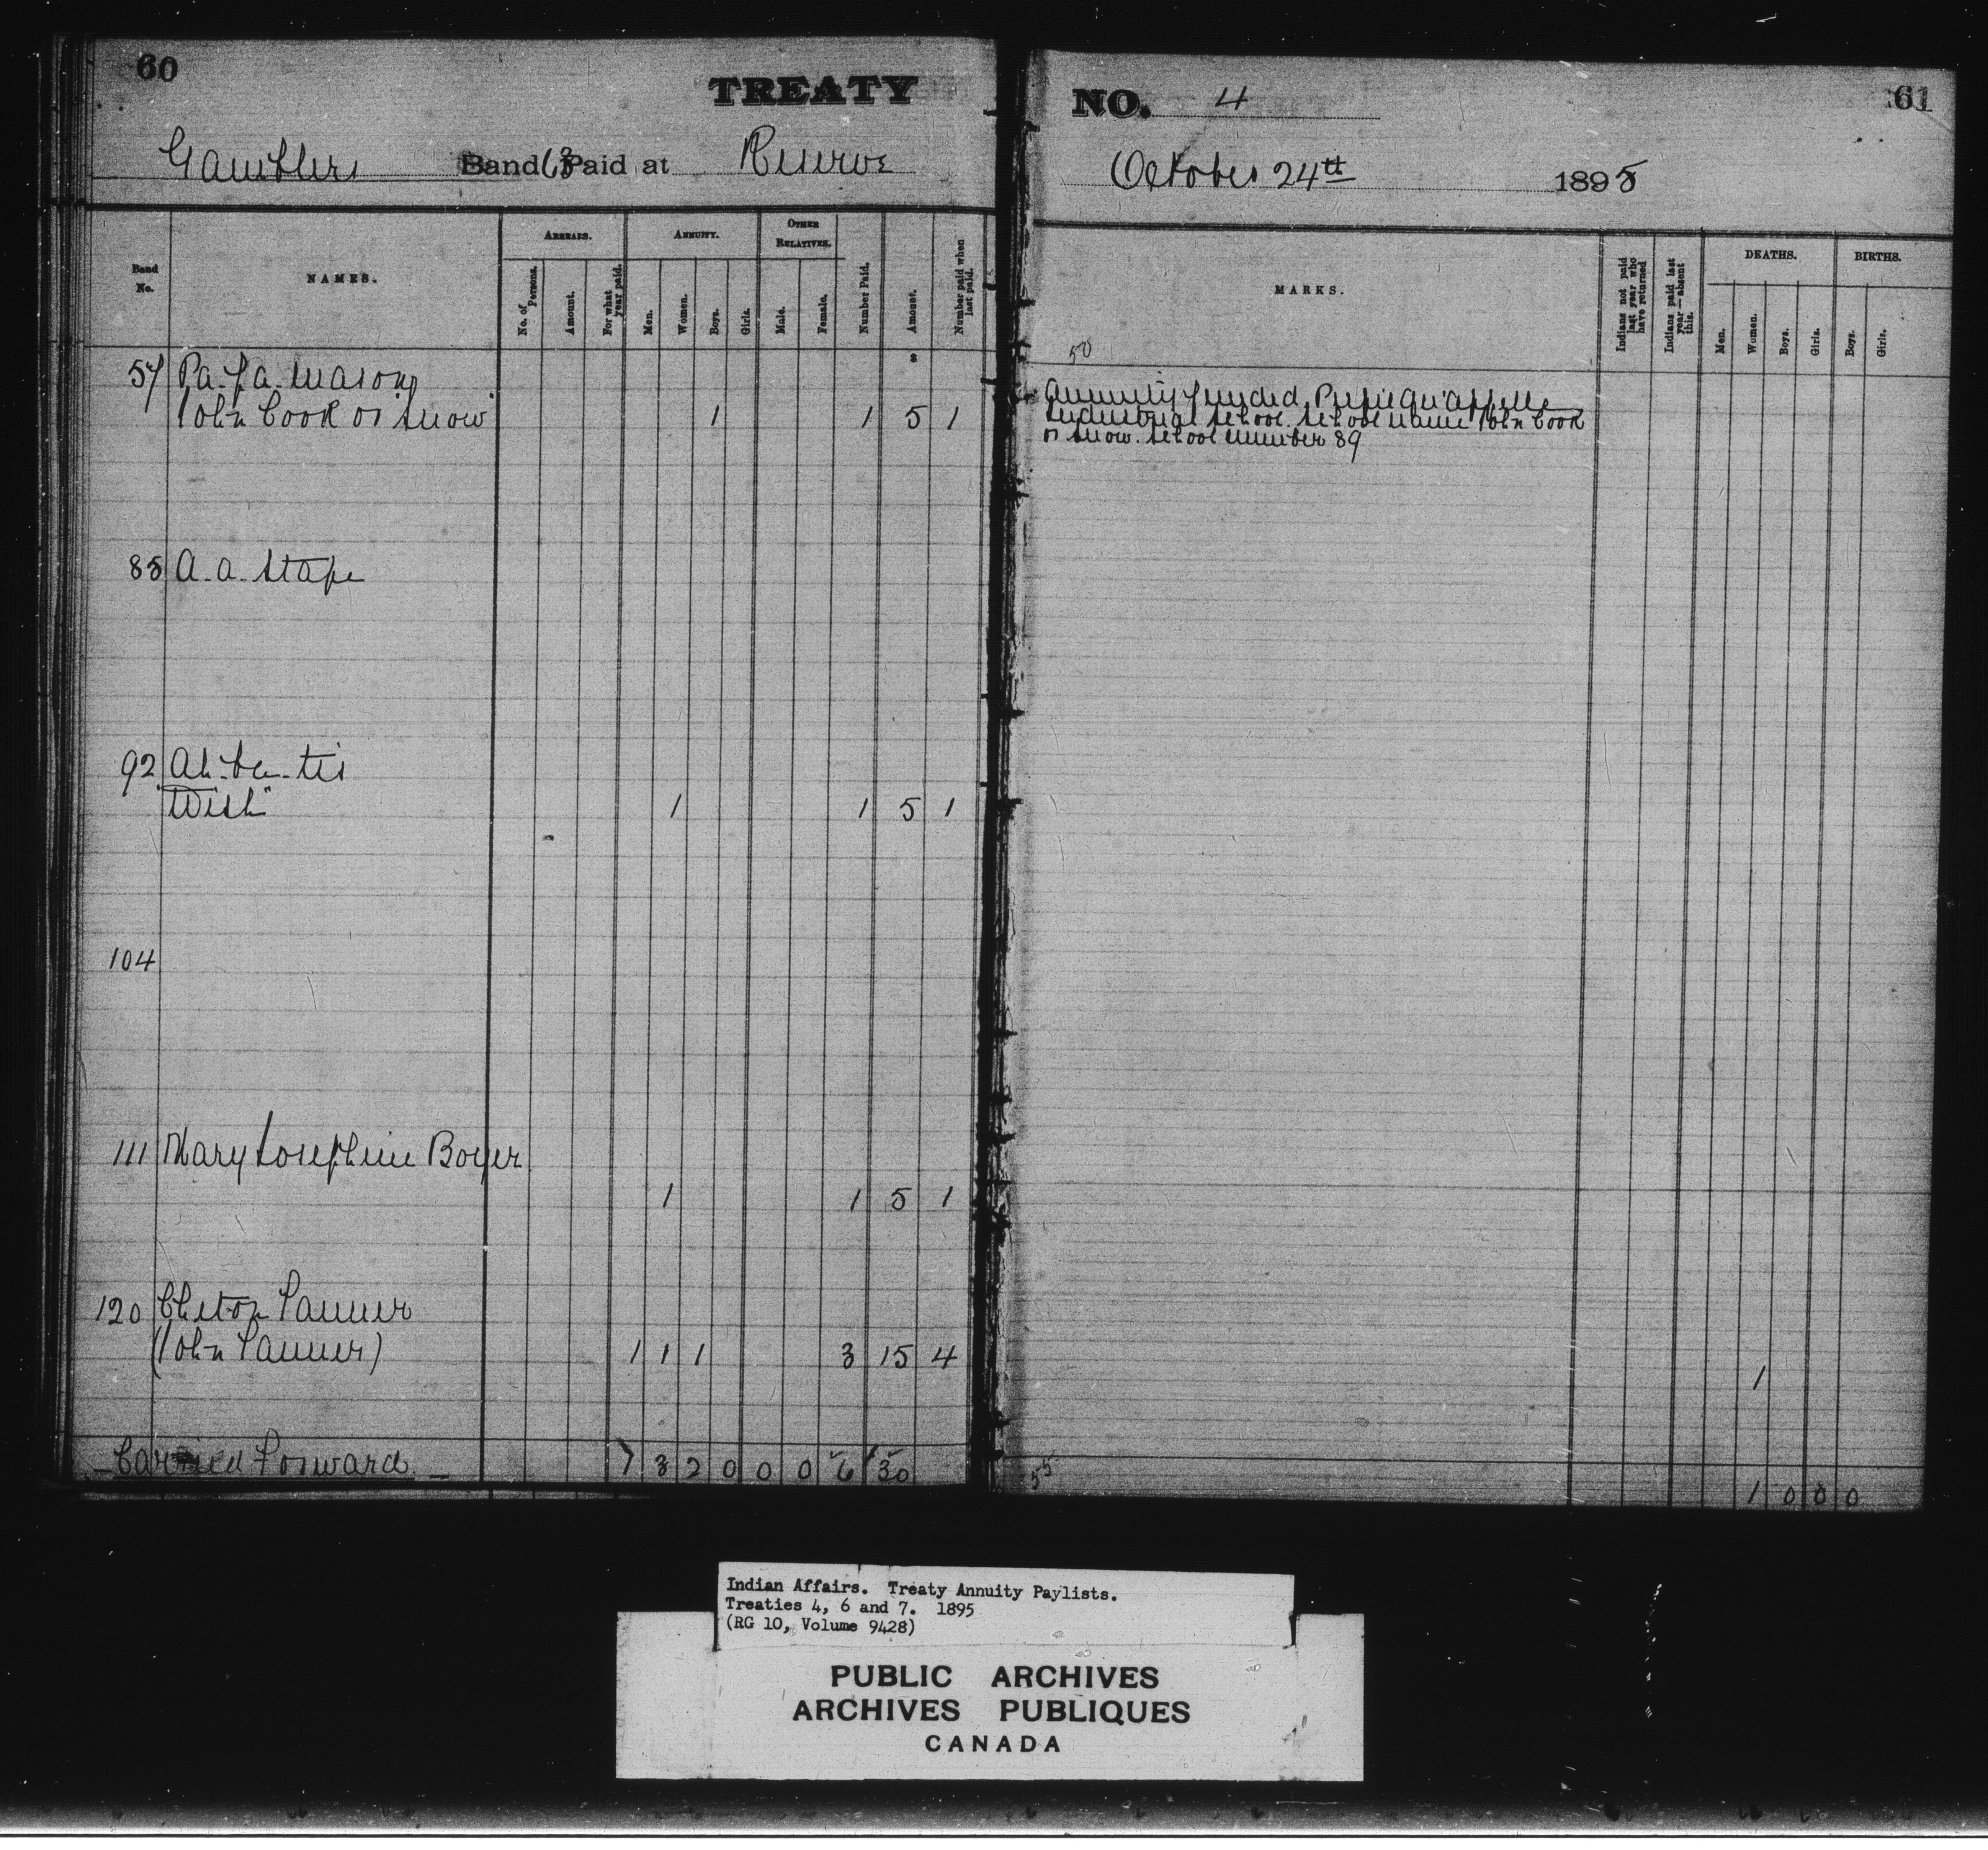 60
TREATY
Gamblers Band 63 Paid at Reserve
Band No.
NAMES.
ARREARS.
ANNUITY.
OTHER RELATIVES.
No. of Persons.
Amount.
For what year paid.
Men.
Women.
Boys.
Girls.
Male.
Female.
Number Paid.
Amount.
Number paid when last paid.
$
57 Pa. pa.
John Cook or Snow 1 1 5 1
85 A. a. Stape
92 Ah. be. tis
"Wish" 1 1 5 1
104
111 Mary Josephine Boyer
1 1 5 1
120 Tanner
(John Tanner) 1 1 1 3 15 4
Carried Forward 1 3 2 0 0 0 6 30
NO. 4
61
October 24th 1895
MARKS.
Indians not paid last year who have returned
Indians paid last year—absent this.
DEATHS.
BIRTHS.
Men.
Women.
Boys.
Girls.
Boys.
Girls.
50
Annuity funded. Pupil Qu'appelle
Industrial School. School name John Cook
or Snow. School number 89
1
55
1 0 0 0
Indian Affairs. Treaty Annuity Paylists.
Treaties 4, 6 and 7. 1895
(RG 10, Volume 9428)
PUBLIC ARCHIVES
ARCHIVES PUBLIQUES
CANADA